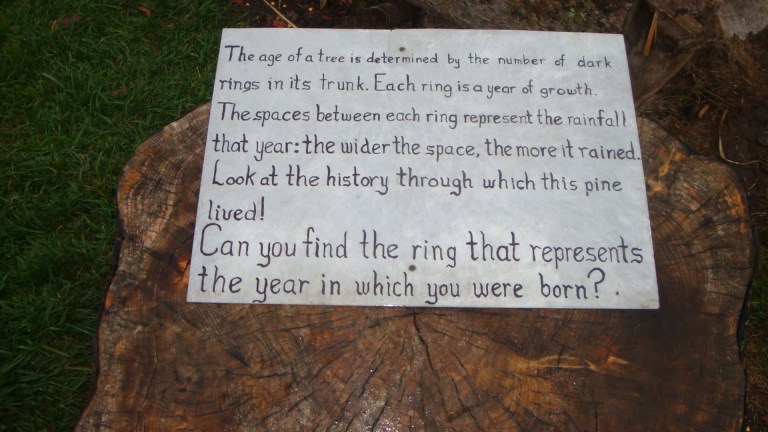 The age of a tree is determined by the number of dark
rings in its trunk. Each ring is a year of growth.
The spaces between each ring represent the rainfall
that year: the wider the space, the more it rained.
Look at the history through which this pine
lived!
Can you find the ring that represents
the year in which you were born?